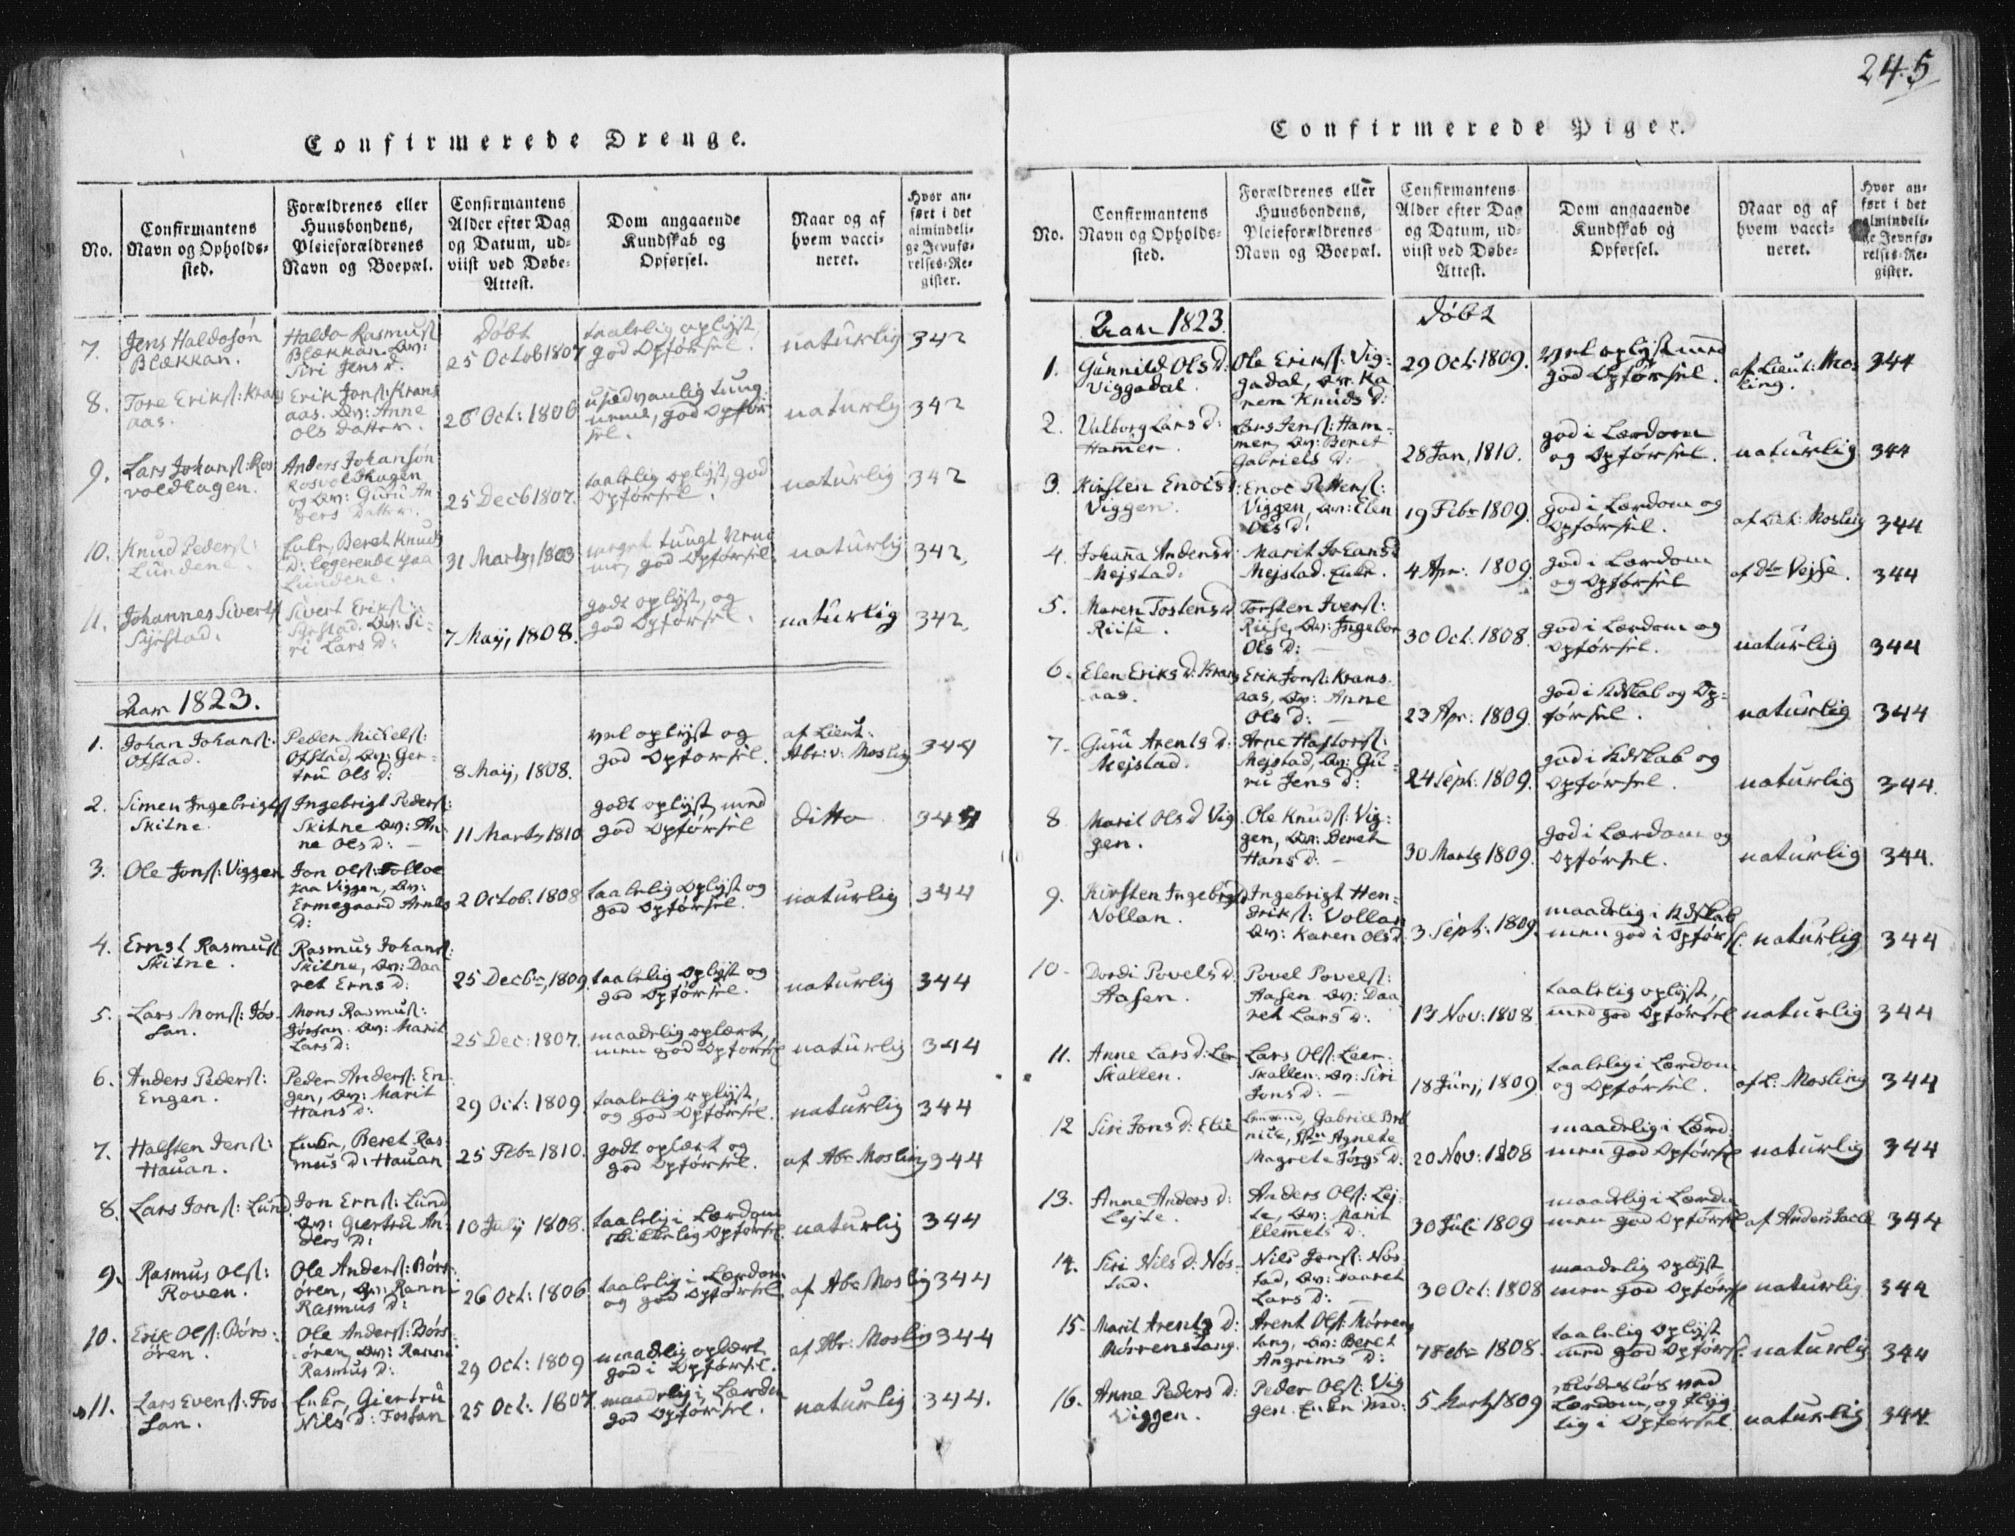 245
Confirmerede Drenge.
No.
Confirmantens
Navn og Opholds-
sted.
Forældrenes eller
Huusbondens,
Pleieforældrenes
Navn og Boepæl.
Confirmantens
Alder efter Dag
og Datum, ud-
viist ved Døbe-
Attest.
Dom angaaende
Kundskab og
Opførsel.
Naar og af
hvem vacci-
neret.
Hvor an-
ført i det
almindeli-
ge Jevnfø-
relses-Re-
gister.
7.
Jens Haldosøn
Blækkan.
Haldo Rasmusſ:
Blækkan. Qv:
Siri Jens d:
Døbt
25 Octob 1807
taalelig oplyst,
god Opførsel.
naturlig
342
8.
Tore Eriksſ: Krans
aas.
Erik Jonsſ: Krans
aas. Qv: Anne
Ols Datter.
26 Oct: 1806
usedvanlig tung
nemme, god Opfør
sel.
naturlig
342
9.
Lars Johansſ: Ros
voldhagen.
Anders Johansøn
Rosvoldhagen
og Qv: Guru An
ders Datter.
25 Decb 1807.
taalelig oplyst, god
Opførsel.
naturlig
342
10.
Knud Pedersſ:
Lundene.
Enke, Beret Knuds
D: logerende paa
Lundene.
31 Marty, 1803
meget tungt Nem
me, god Opførsel
naturlig
342,
11.
Johannes Sivertsſ
Syrstad.
Sivert Eriksſ:
Syrstad. Qv: Si-
ri Lars D:
7 Maij, 1808.
godt oplyst, og
god Opførsel.
naturlig
342,
Aar 1823.
1.
Johan Johansſ:
Ofstad.
Peder Mickelsſ:
Ofstad, Qv: Ger-
tru Ols D:
8 Maij, 1808.
vel oplyst og
god Opførsel.
af Lieut:
Abr: v: Mosling
344
2.
Simen Ingebrigtsſ
Skitne.
Ingebrigt Pedersſ:
Skitne Qv: An-
ne Ols D:
11 Marts 1810
godt oplyst, med
god Opførsel
ditto
344
3.
Ole Jonsſ: Viggen
Jon Olsſ: Folloe
paa Viggen, Qv:
Ermegaard Arnts
D:
2 Octob. 1808
taalelig oplyst og
god Opførsel.
naturlig
344
4.
Ernst Rasmusſ
Skitne.
Rasmus Johansſ:
Skitne, Qv: Daa
ret Erns D:
25 Decbr, 1809
taalelig oplyst og
god Opførsel.
naturlig
344
5.
Lars Monsſ: Jøs-
san.
Mons Rasmusſ:
Jørsan. Qv: Marit
Lars D:
25 Dec: 1807.
maadelig oplært,
men god Opførsel
naturlig
344
6.
Anders Pedersſ:
Engen.
Peder Andersſ: En-
gen, Qv: Marit
Hans D:
29 Oct: 1809
taalelig oplyst
og god Opførsel.
naturlig
344
7.
Halsten Jensſ:
Hauan.
Enke, Beret Ras-
mus D: Hauan
25 Febr 1810.
godt oplært og
god Opførsel.
af Abr Mosling
344
8.
Lars Jonsſ: Lund.
Jon Ernsſ: Lund
Qv: Giertru An-
ders D:
10 July 1808.
taalelig i Lærdom
skikkelig Opførsel.
naturlig
344
9.
Rasmus Olsſ:
Roven.
Ole Andersſ: Børs-
øren, Qv: Ranni
Rasmus D:
26 Oct: 1806
taalelig i Lærdom
og god Opførsel
af Abr Mosling
344
10.
Erik Olsſ: Børs-
øren.
Ole Andersſ: Børs-
øren, Qv: Ranni
Rasmus D:
29 Oct: 1809
maadelig oplært
god i Opførsel.
af Abr: Mosling
344
11.
Lars Evensſ: Fos
san.
Enke, Giertru
Nils D: Fossan
25 Oct. 1807
maadelig i Lærdom
god Opførsel.
naturlig
344.
Confirmerede Piger.
No.
Confirmantens
Navn og Opholds-
sted.
Forældrenes eller
Huusbondens,
Pleieforældrenes
Navn og Boepæl.
Confirmantens
Alder efter Dag
og Datum, ud-
viist ved Døbe-
Attest.
Dom angaaende
Kundskab og
Opførsel.
Naar og af
hvem vacci-
neret.
Hvor an-
ført i det
almindeli-
ge Jevnfø-
relses-Re-
gister.
Aar 1823.
Døbt
1.
Gunnild Ols D:
Viggadal.
Ole Eriksſ: Vig-
gadal, Qv: Ka
ren Knuds D:
29 Oct: 1809.
vel oplyst med
god Opførsel.
af Lieut: Mos
ling.
344
2.
Valborg Lars D:
Hammer.
Lars Jensſ: Ham-
mer, Qv: Beret
Gabriels D:
28 Jan, 1810.
god i Lærdom
og Opførsel.
naturlig
344
3.
Kirsten Enocs D:
Viggen.
Enoc Pettersſ:
Viggen, Qv: Elen
Ols D:
19 Febr 1809.
god i Lærdom og
Opførsel.
af Lieut: Mosling
344
4.
Johanna Anders D
Mejstad.
Marit Johans D
Mejstad. Enke.
4 Apr: 1809.
god i Lærdom
og Opførsel
af Dtr Vejse.
344
5.
Maren Tostens D
Riise.
Torsten Iversſ:
Riise, Qv: Ingebor
Ols D:
30 Oct. 1808.
god i Lærdom og
Opførsel.
naturlig
344
6.
Elen Eriks D: Krans
aas.
Erik Jonsſ: Krans
aas, Qv: Anne
Ols D:
23 Apr: 1809.
god i Kdskab og Op-
førsel.
naturlig
344
7.
Guru Arents D:
Mejstad.
Arne Hastorsſ:
Mejstad, Qv: Gu-
ru Jens D:
24 Sept: 1809.
god i Kdskab og
Opførsel.
naturlig
344.
8
Marit Ols D Vig
gen.
Ole Knudsſ: Vig-
gen, Qv: Beret
Hans D:
30 Marty 1809.
god i Lærdom og
Opførsel.
naturlig
344.
9.
Kirsten Ingebrigts D
Vollan.
Ingebrigt Hen-
driksſ: Vollan
Qv: Karen Ols D:
3 Sept: 1809.
maadelig i Kdskab
men god i Opførsſ.
naturlig
344
10
Dordi Povels D:
Aasen.
Povel Povelsſ:
Aasen Qv: Daa
ret Lars D:
13 Nov: 1808
taalelig oplyst,
med god Opførsel
naturlig
344
11.
Anne Lars D: Ler
Skallen.
Lars Olsſ: Leer-
Skallen. Qv: Siri
Jons D:
18 Junj, 1809
taalelig i Lærdom
og Opførsel.
af L: Mosling
344
12
Siri Jons D: Elie
Gabriel
Agnete
Magrete Jørgs D:
20 Nov: 1808
maadelig i Lærd
men god Opførsel
naturlig
344
13.
Anne Anders D:
Lejte.
Anders Olsſ: Lej-
te, Qv: Marit
Clemmets D:
30 Juli 1809
maadelig i Lærdom
men god Opførsel
af Anders Sacle
344
14.
Siri Nils D: Nøs-
tad.
Nils Jensſ: Nøs-
tad, Qv: Daaret
Lars D:
30 Oct: 1808
maadelig oplyst
men god Opførsſ
naturlig
344
15.
Marit Arents D:
Mørrenstang.
Arent Olsſ: Mørren
stang, Qv: Beret
Angrims D:
7 Febr 1808.
taalelig oplyst
med god Opførsſ.
naturlig
344
16.
Anne Peders D:
Viggen.
Peder Olsſ: Vig
gen.
5 Marty 1809
skjødesløs ved
Lærdom, og flyg
tig i Opførsel
naturlig
344